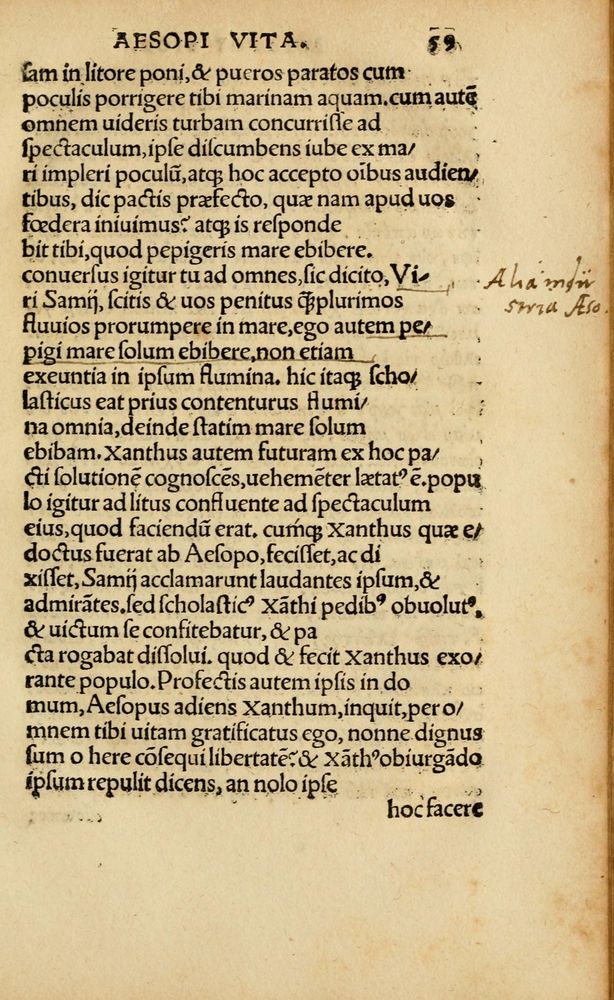 AESOPI VITA. 59
sam in litore poni, & pueros paratos cum
poculis porrigere tibi marinam aquam. cum autẽ
omnem uideris turbam concurrisse ad
spectaculum, ipse discumbens iube ex ma/
ri impleri poculũ, atqꝫ hoc accepto oĩbus audien/
tibus, dic pactis præfecto, quæ nam apud uos
fœdera iniuimus? atqꝫ is responde
bit tibi, quod pepigeris mare ebibere.
conuersus igitur tu ad omnes, sic dicito, Vi/
ri Samij, scitis & uos penitus q̃plurimos
fluuios prorumpere in mare, ego autem pe/
pigi mare solum ebibere, non etiam
exeuntia in ipsum flumina. hic itaqꝫ scho/
lasticus eat prius contenturus flumi/
na omnia, deinde statim mare solum
ebibam. Xanthus autem futuram ex hoc pa/
cti solutionẽ cognoscẽs, uehemẽter lætatꝰ ẽ. popu
lo igitur ad litus confluente ad spectaculum
eius, quod faciendũ erat. cumqꝫ Xanthus quæ e/
doctus fuerat ab Aesopo, fecisset, ac di
xisset, Samij acclamarunt laudantes ipsum, &
admirãtes. sed scholasticꝰ Xãthi pedibꝰ obuolutꝰ,
& uictum se confitebatur, & pa
cta rogabat dissolui. quod & fecit Xanthus exo/
rante populo. Profectis autem ipsis in do
mum, Aesopus adiens Xanthum, inquit, per o/
mnem tibi uitam gratificatus ego, nonne dignus
sum o here cõsequi libertatẽ? & Xãthꝰ obiurgãdo
ipsum repulit dicens, an nolo ipse
hoc facere
Alia
Æso.